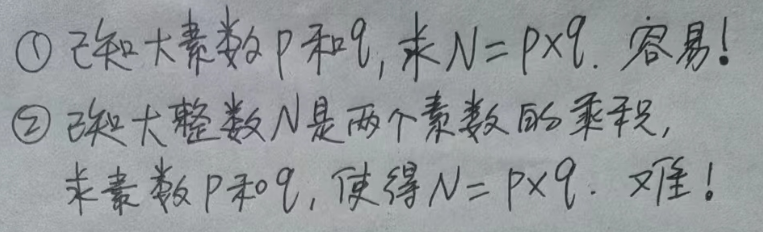 ① 已知大素数p和q,求N=p×q. 容易!
② 已知大整数N是两个素数的乘积,
求素数p和q,使得N=p×q. 难!